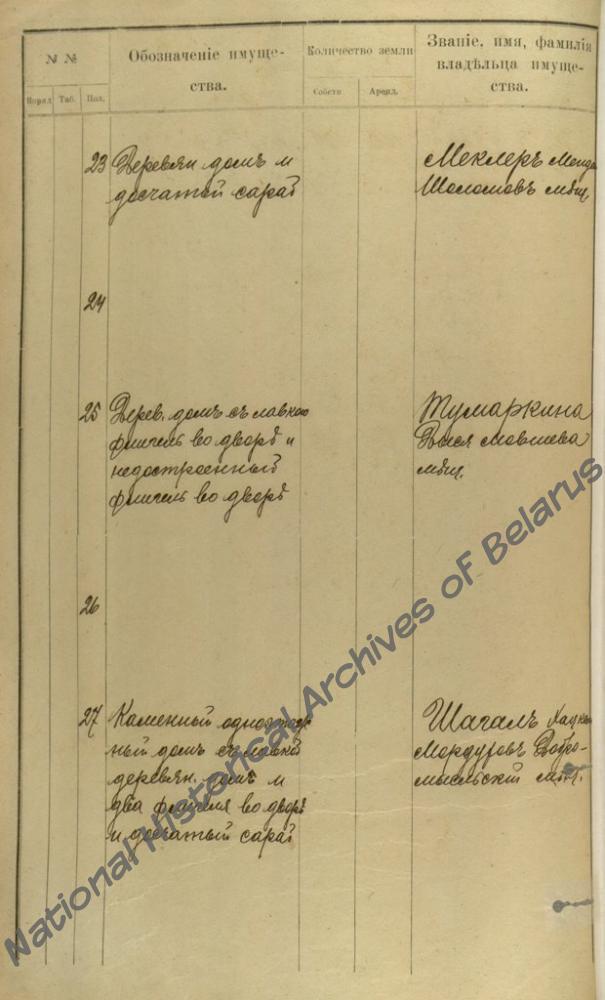 N N
Обозначеніе имуще-
ства.
Количество земли
Званіе, имя, фамилія
владѣльца имуще-
ства.
Поряд.
Таб.
Пол.
Собств
Аренд.
23 Деревян. домъ и
досчатый сарай
Меклеръ
Шоломовъ мѣщ.
24
25 Дерев. домъ съ лавкою
флигель во дворѣ и
недостроенный
флигель во дворѣ
Тумаркина
Мовшева
мѣщ.
26
27 Каменный одноэтаж
ный домъ съ лавкой
деревян. домъ и
два флигеля во дворѣ
и досчатый сарай
Шагалъ Хацкель
Мордуховъ Добро-
мысльскій мѣщ.
National Historical Archives of Belarus